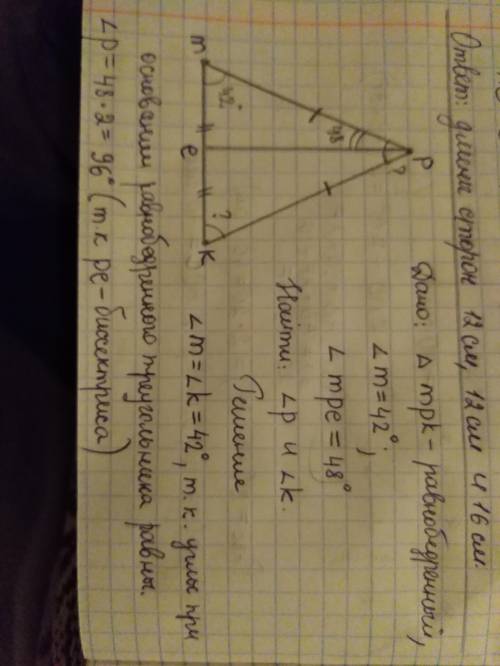 Ответ: длина сторон 12 см, 12 см и 16 см.
Дано: Δ mpk - равнобедренный,
∠m=42°;
∠mpe=48°
Найти: ∠p и ∠k.
Решение
m
42°
e
?
K
48
?
P
∠m=∠k=42°, т.к. углы при
основании равнобедренного треугольника равны.
∠p=48·2=96° (т.к pe-биссектриса)